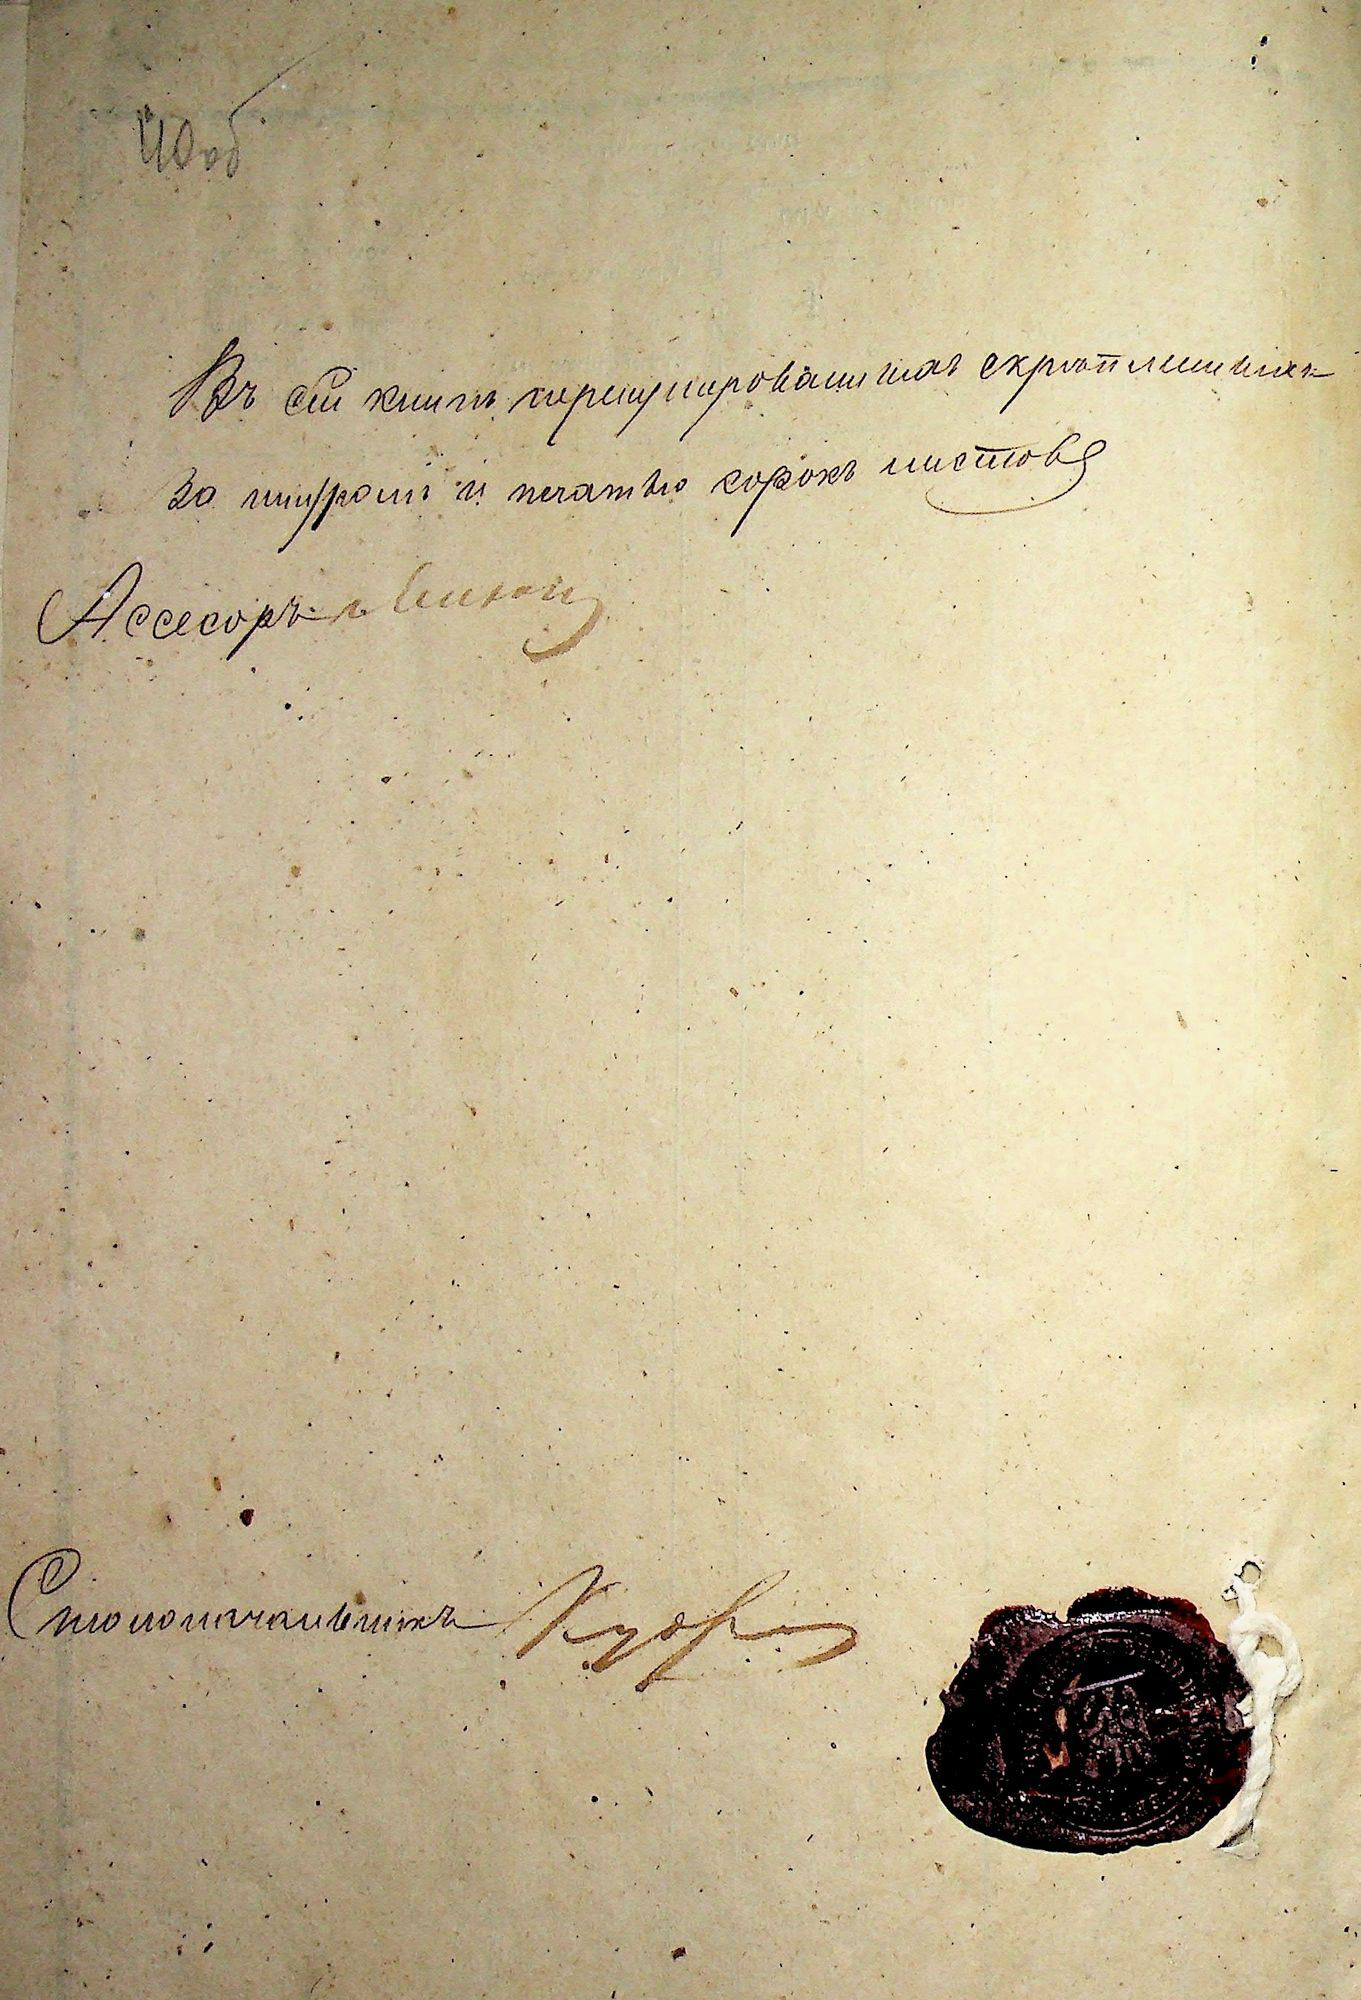 40 об
Въ сей книгѣ перенумерованныхъ скрѣпленныхъ
за шнуромъ и печатью сорокъ листовъ
Ассесоръ
Столоначальникъ